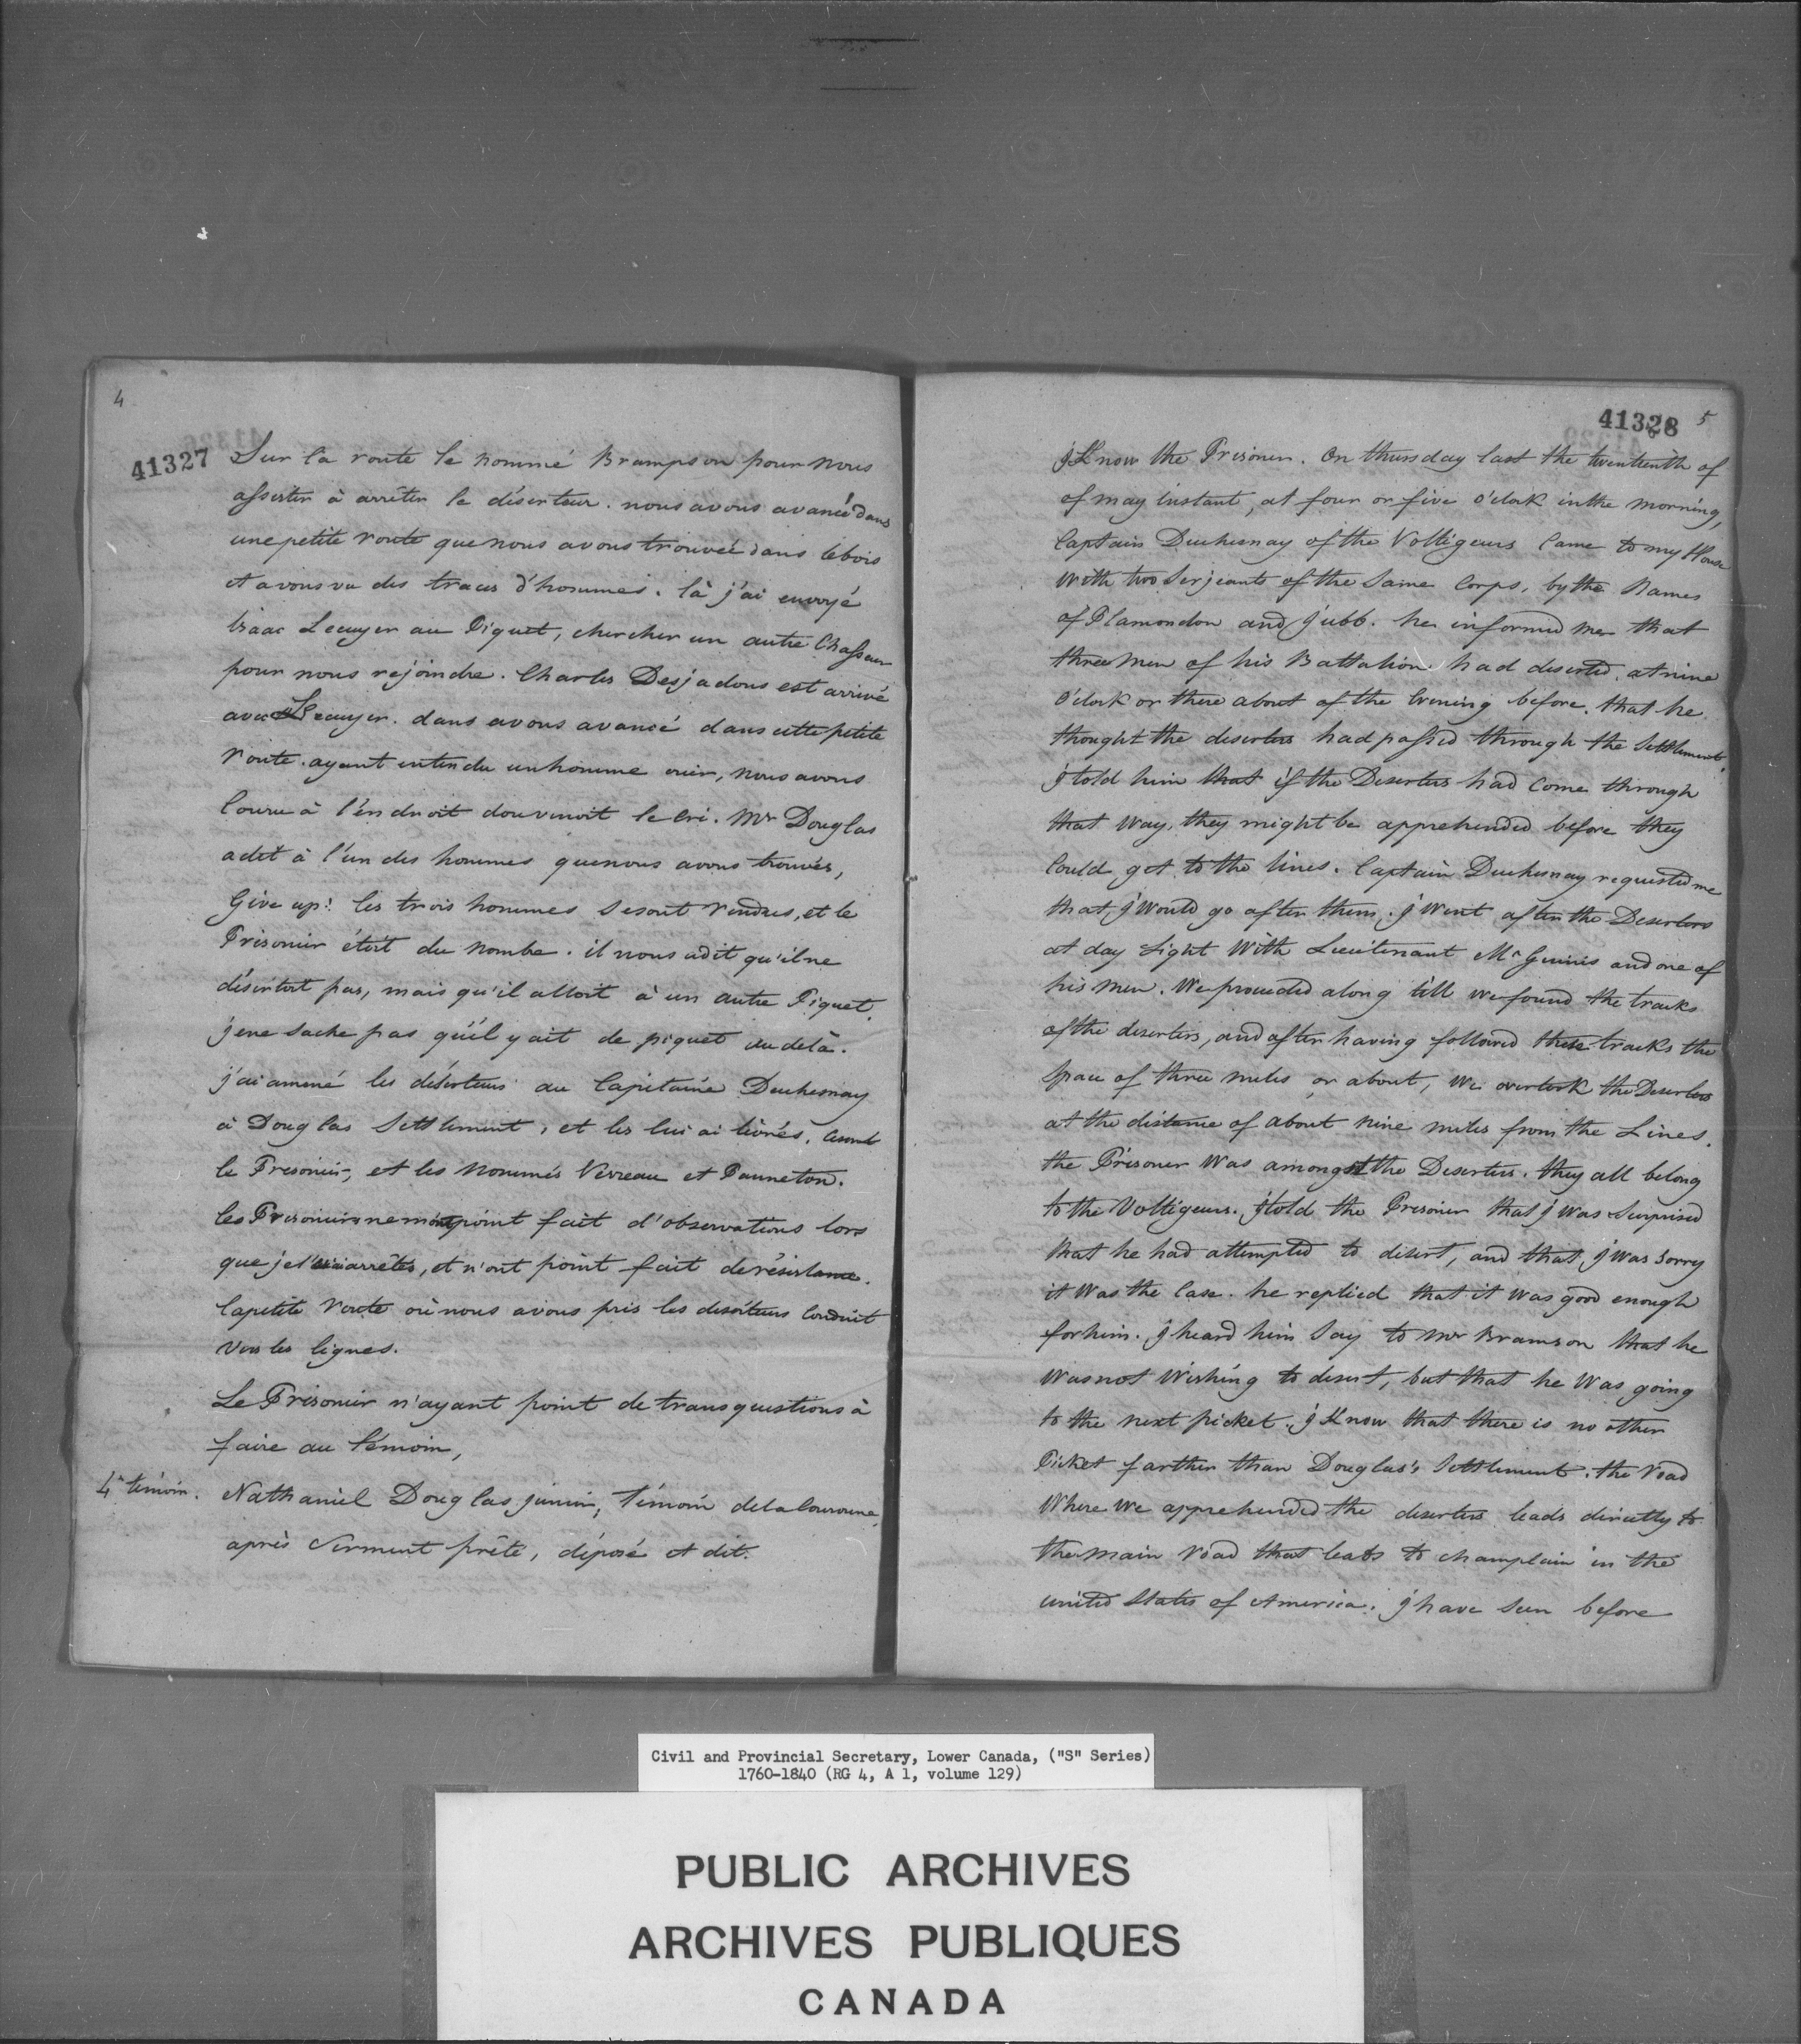 4
41327
Sur la route le nommé Brampson pour nous
assister à arrêter le déserteur. nous avons avancé dans
une petite route que nous avons trouvée dans le bois
et avons vu des traces d'hommes. là j'ai envoyé
Isaac Lecuyer au Piquet, chercher un autre Chasseur
pour nous rejoindre. Charles Desjadons est arrivé
avec Lecuyer. dans avons avancé dans cette petite
route. ayant entendu un homme crier, nous avons
couru à l'éndroit dou venoit le cri. Mr Douglas
a dit à l'un des hommes que nous avons trouvés,
Give up! les trois hommes se sont rendus, et le
Prisonier étoit du nombe. il nous a dit qu'il ne
désertoit pas, mais qu'il alloit à un autre Piquet.
je ne sache pas qu'il y ait de piquet au delà.
j'ai amené les déserteurs au Capitaine Duchesnay
à Douglas Settlement, et les lui ai livrés. Cesont
le Prisonier, et les nommés Verreau et Pauneton.
les Prisoniers ne m'ont point fait d'observations lors
que je les ai arrêtés, et n'ont point fait de résistance.
la petite route où nous avons pris les deserteurs Conduit
vers les lignes.
Le Prisonier n'ayant point de transquestions à
faire au témoin,
4e témoin. Nathaniel Douglas junior, Témoin de la Couronne,
après Serment prêté, déposé et dit.
41328 5
J Know the Prisoner. On thursday last the twentienth of
of may instant, at four or five o'clock in the morning,
Captain Duchesnay of the Voltigeurs Came to my House
with two Serjeants of the Same Corps, by the Names
of Plamondon and Jubb. he informed me that
three men of his Battalion had deserted, at nine
o'clock or there about of the Evening before. that he
thought the deserters had passed through the Settlement.
J told him that if the Deserters had Come through
that way, they might be apprehended before they
Could get to the lines. Captain Duchesnay requested me
that J would go after them. J Went after the Deserters
at day Light With Lieutenant McGinnis and one of
his men. We proceeded along till we found the tracks
of the deserters, and after having followed these tracks the
Space of three miles or about, We overtook the Deserters
at the distance of about nine miles from the Lines.
the Prisoner Was amongst the Deserters. they all belong
to the Voltigeurs. J told the Prisoner that J Was Surprised
that he had attempted to desert, and that J Was Sorry
it Was the Case. he replied that it was good enough
for him. J heard him Say to Mr Bramson that he
was not Wishing to desert, but that he Was going
to the next picket. J Know that there is no other
Picket farther than Douglas's Settlement. the Road
Where We apprehended the deserters leads directly to
the main road that leads to champlain in the
united States of America. J have seen before
Civil and Provincial Secretary, Lower Canada, ("S" Series)
1760-1840 (RG 4, A 1, volume 129)
PUBLIC ARCHIVES
ARCHIVES PUBLIQUES
CANADA